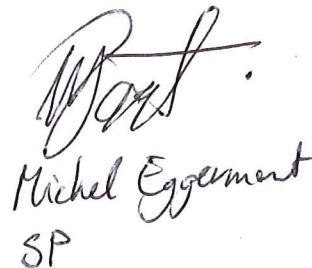 Michel Eggermont
SP